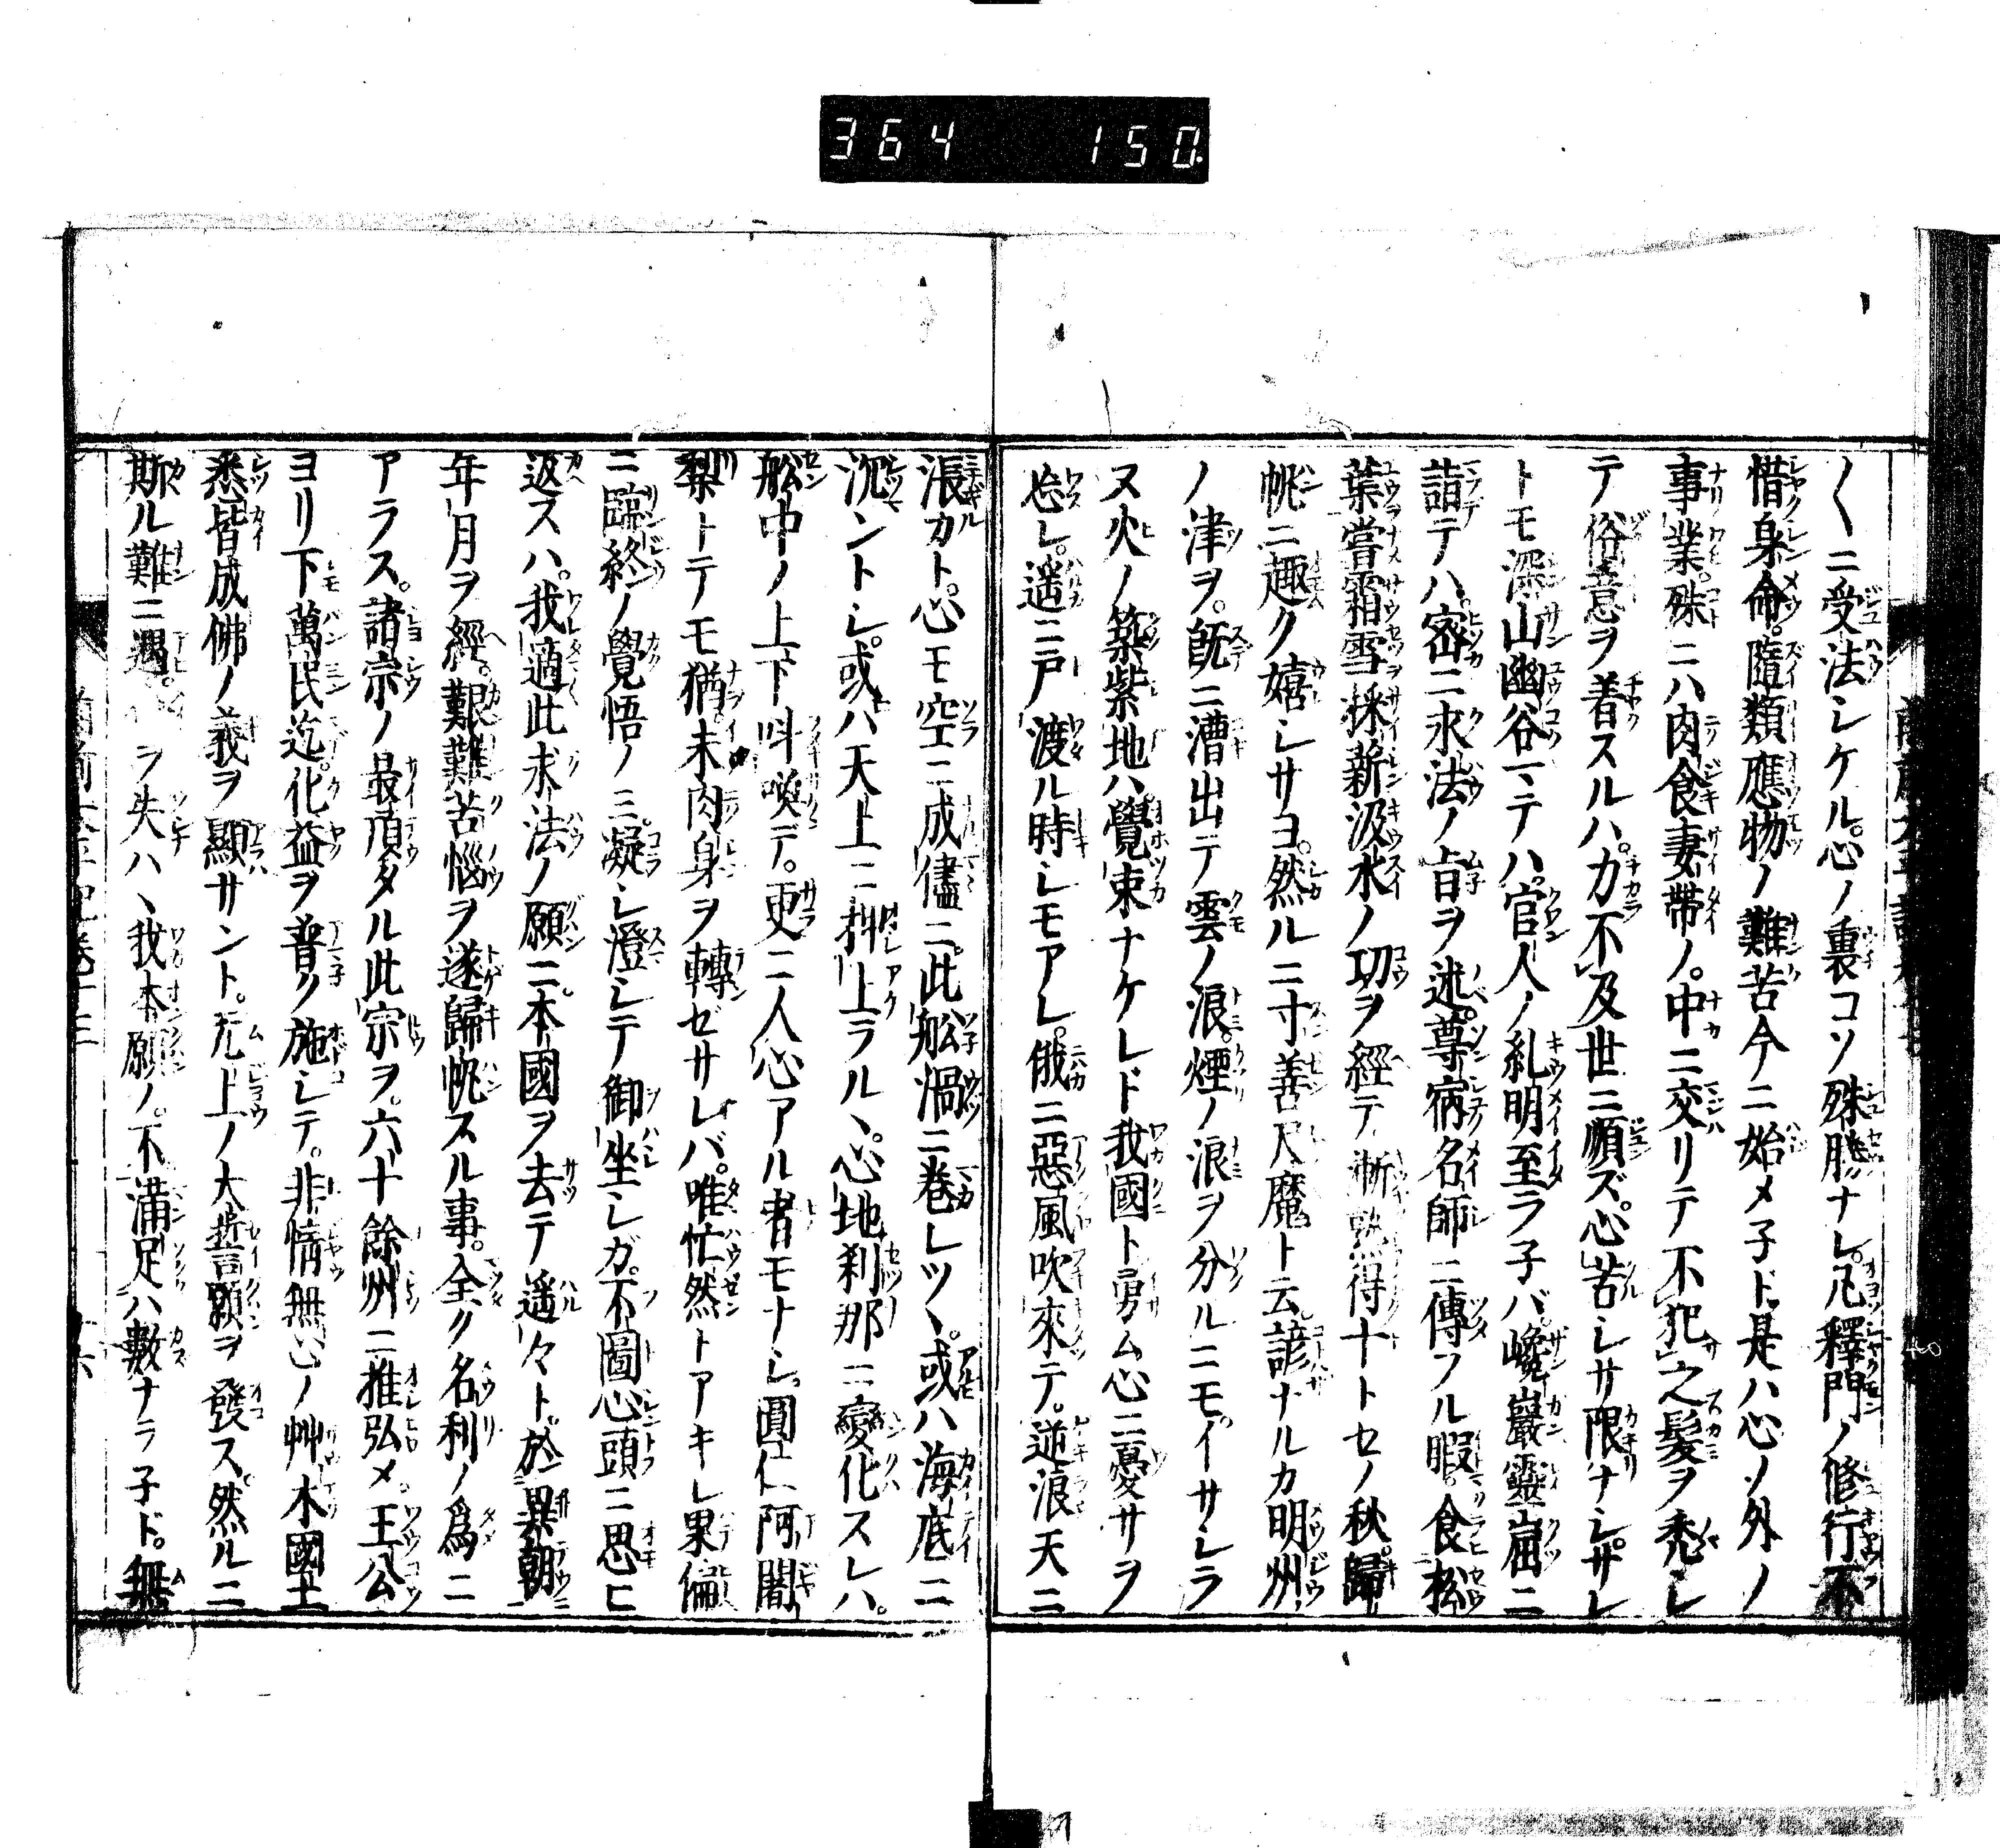 364 150
〳〵ニ受法シケル。心ノ裏コソ殊勝ナレ。凡釋門ノ修行不
惜身命。隨類應物ノ難苦今ニ始メ子ド。是ハ心ノ外ノ
事業。殊ニハ肉食妻帶ノ。中ニ交リテ不犯之髮ヲ禿シ
テ俗意ヲ着スルハ。力不及世ニ順ズ。心苦シサ限ナシ。サレ
トモ深山幽谷ニテハ。官人ノ糺明至ラ子バ。巉巖靈崫ニ
詣テハ。密ニ求法ノ旨ヲ述。尊病名師ニ傳フル暇。食松
葉甞霜雪採薪汲水ノ功ヲ經テ漸熟得十トセノ秋。歸
帆ニ趣ク嬉シサヨ。然ルニ寸善尺魔ト云諺ナルカ明州
ノ津ヲ。既ニ漕出テ雲ノ浪。煙ノ浪ヲ分ルニモ。イサシラ
ヌ火ノ築紫地ハ。覺束ナケレド我國ト勇ム心ニ憂サヲ
忘レ。遥ニ戸渡ル時シモアレ。俄ニ惡風吹來テ。逆浪天ニ
漲カト。心モ空ニ成儘ニ。此舩渦ニ巻レツヽ。或ハ海底ニ
沉ントシ。或ハ天上ニ抑上ラルヽ。心地刹那ニ變化スレハ。
舩中ノ上下叫喚デ。更ニ人心アル者モナシ。圓仁阿闍
梨トテモ猶未肉身ヲ轉ゼサレバ。唯忙然トアキレ果僃
ニ臨終ノ覺悟ノミ凝シ澄シテ御坐シガ。不圖心頭ニ思ヒ
返スハ。我適此求法ノ願ニ。本國ヲ去テ遥々ト。於異朝
年月ヲ經。艱難苦惱ヲ遂歸帆スル事。全ク名利ノ爲ニ
アラス。諸宗ノ最頂タル此宗ヲ。六十餘州ニ推弘メ。王公
ヨリ下萬民迄。化益ヲ普ク施シテ。非情無心ノ艸木國土
悉皆成佛ノ義ヲ顯サント。无上ノ大誓願ヲ發ス。然ルニ
斯ル難ニ遇。ヲ失ハヽ我本願ノ。不滿足ハ數ナラ子ド。無